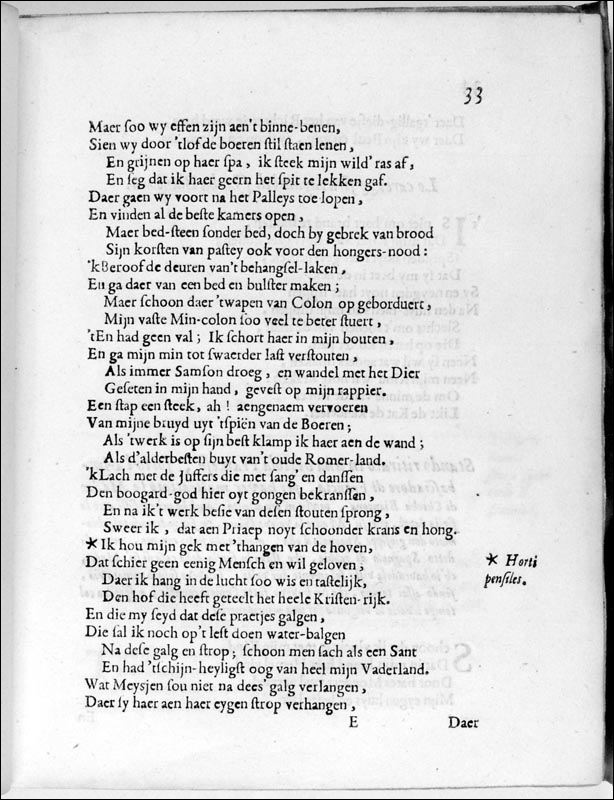 33
Maer ſoo wy effen zijn aen't binne-benen,
Sien wy door 'tlof de boeren ſtil ſtaen lenen,
En grijnen op haer ſpa, ik ſteek mijn wild' ras af,
En ſeg dat ik haer geern het ſpit te lekken gaf.
Daer gaen wy voort na het Palleys toe lopen,
En vinden al de beſte kamers open,
Maer bed-ſteen ſonder bed, doch by gebrek van brood
Sijn korſten van paſtey ook voor den hongers-nood:
'kBeroof de deuren van't behangſel-laken,
En ga daer van een bed en bulſter maken;
Maer ſchoon daer 'twapen van Colon op geborduert,
Mijn vaſte Min-colon ſoo veel te beter ſtuert,
'tEn had geen val; Ik ſchort haer in mijn bouten,
En ga mijn min tot ſwaerder laſt verſtouten,
Als immer Samſon droeg, en wandel met het Dier
Geſeten in mijn hand, geveſt op mijn rappier.
Een ſtap een ſteek, ah! aengenaem vervoeren
Van mijne bruyd uyt 'tſpiën van de Boeren;
Als 'twerk is op ſijn beſt klamp ik haer aen de wand;
Als d'alderbeſten buyt van't oude Romer-land.
'kLach met de Juffers die met ſang' en danſſen
Den boogard-god hier oyt gongen bekranſſen,
En na ik't werk beſie van deſen ſtouten ſprong,
Sweer ik, dat aen Priaep noyt ſchoonder krans en hong.
* Ik hou mijn gek met 'thangen van de hoven,
Dat ſchier geen eenig Menſch en wil geloven,
Daer ik hang in de lucht ſoo wis en taſtelijk,
Den hof die heeft geteelt het heele Kriſten-rijk.
* Horti
penſiles.
En die my ſeyd dat deſe praetjes galgen,
Die ſal ik noch op't leſt doen water-balgen
Na deſe galg en ſtrop; ſchoon men ſach als een Sant
En had 'tſchijn-heyligſt oog van heel mijn Vaderland.
Wat Meysjen ſou niet na dees' galg verlangen,
Daer ſy haer aen haer eygen ſtrop verhangen,
E Daer